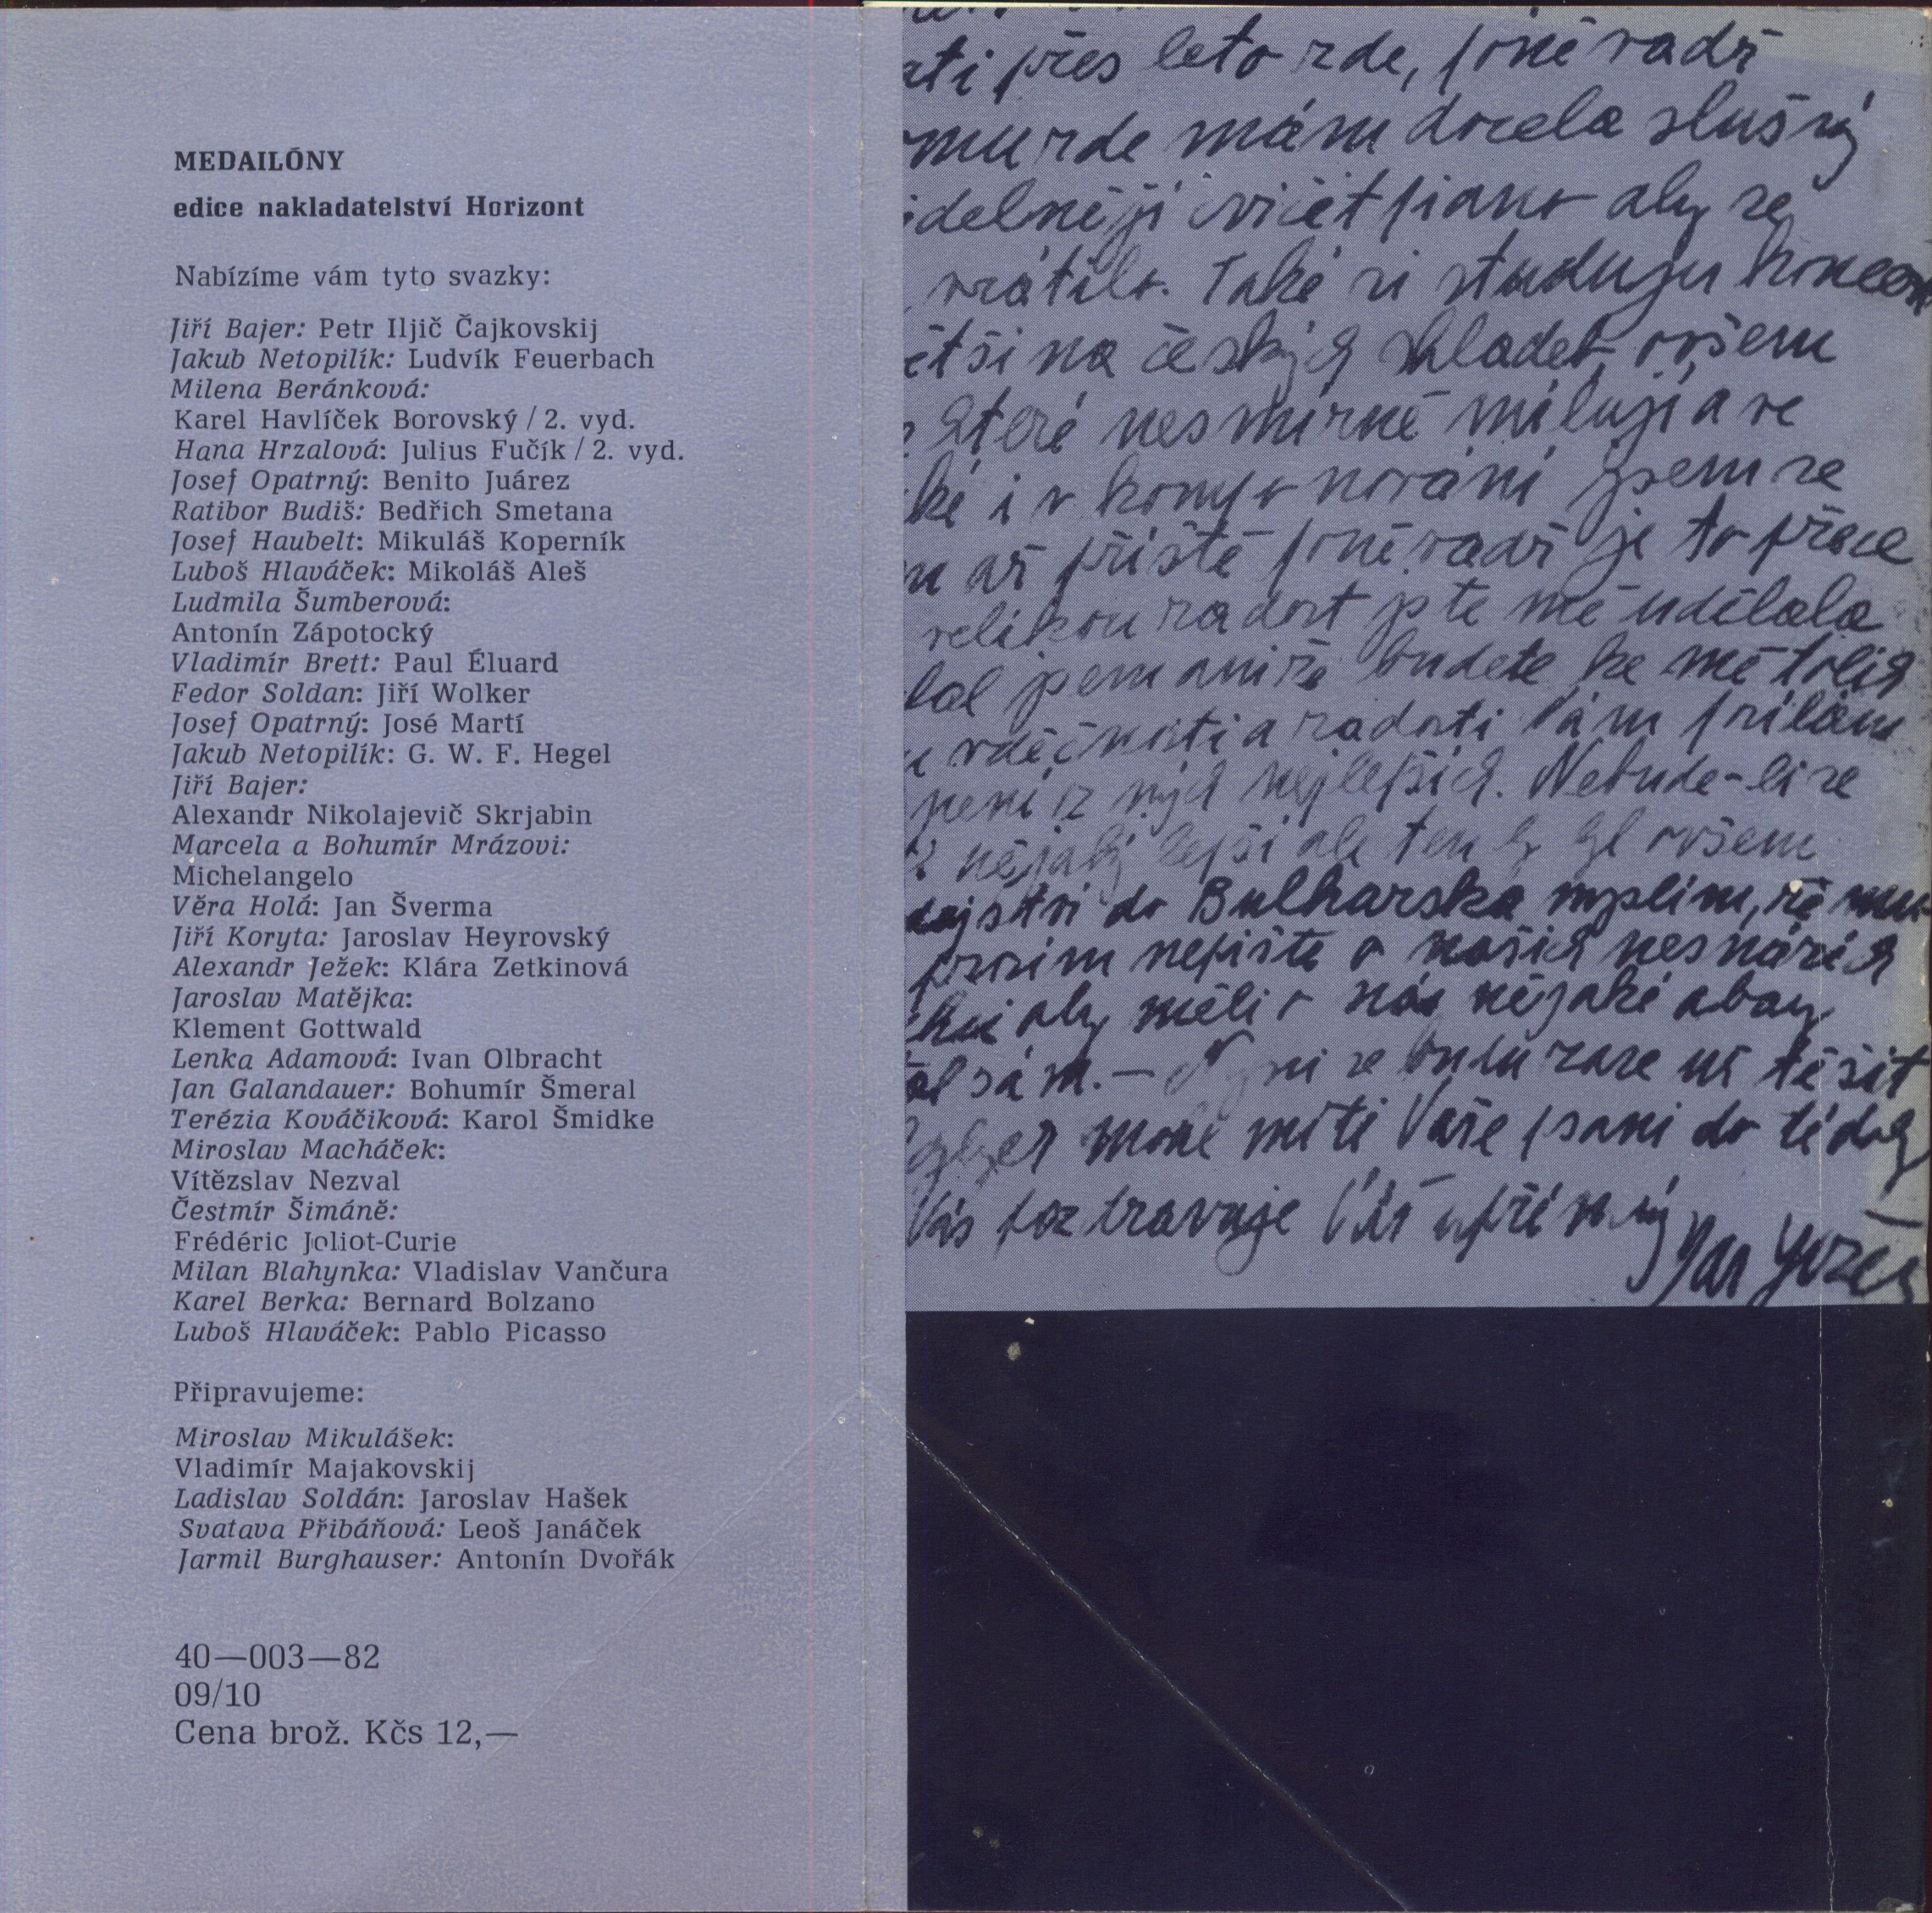 MEDAILÓNY
edice nakladatelství Horizont
Nabízíme vám tyto svazky:
Jiří Bajer: Petr Iljič Čajkovskij
Jakub Netopilík: Ludvík Feuerbach
Milena Beránková:
Karel Havlíček Borovský / 2. vyd.
Hana Hrzalová: Julius Fučík / 2. vyd.
Josef Opatrný: Benito Juárez
Ratibor Budiš: Bedřich Smetana
Josef Haubelt: Mikuláš Koperník
Luboš Hlaváček: Mikoláš Aleš
Ludmila Šumberová:
Antonín Zápotocký
Vladimír Brett: Paul Éluard
Fedor Soldan: Jiří Wolker
Josef Opatrný: José Martí
Jakub Netopilík: G. W. F. Hegel
Jiří Bajer:
Alexandr Nikolajevič Skrjabin
Marcela a Bohumír Mrázovi:
Michelangelo
Věra Holá: Jan Šverma
Jiří Koryta: Jaroslav Heyrovský
Alexandr Ježek: Klára Zetkinová
Jaroslav Matějka:
Klement Gottwald
Lenka Adamová: Ivan Olbracht
Jan Galandauer: Bohumír Šmeral
Terézia Kováčiková: Karol Šmidke
Miroslav Macháček:
Vítězslav Nezval
Čestmír Šimáně:
Frédéric Joliot-Curie
Milan Blahynka: Vladislav Vančura
Karel Berka: Bernard Bolzano
Luboš Hlaváček: Pablo Picasso
Připravujeme:
Miroslav Mikulášek:
Vladimír Majakovskij
Ladislav Soldán: Jaroslav Hašek
Svatava Přibáňová: Leoš Janáček
Jarmil Burghauser: Antonín Dvořák
40—003—82
09/10
Cena brož. Kčs 12,—
přes leto zde, poně vadž
zde mám docela slušný
cvičet piano aby se
vrátilo. Také si studuju
na českých skladeb ovšem
které nesmírně miluji a ve
i v komponování jsem se
až příště poněvadž je to přece
velikou radost jste mě udělala
jsem ani že budete ke mě tolik
vděčnosti a radosti Vám posílám
není z mých nejlepších. Nebude-li se
nějaký lepší ale ten by byl ovšem
do Bulharska myslím, že
prosím nepište o našich nesnázích
aby měli o nás nějaké obavy
sám. — Nyní se budu zase už těšit
může míti Vaše psaní do té doby
Vás pozdravuje Váš upřímný